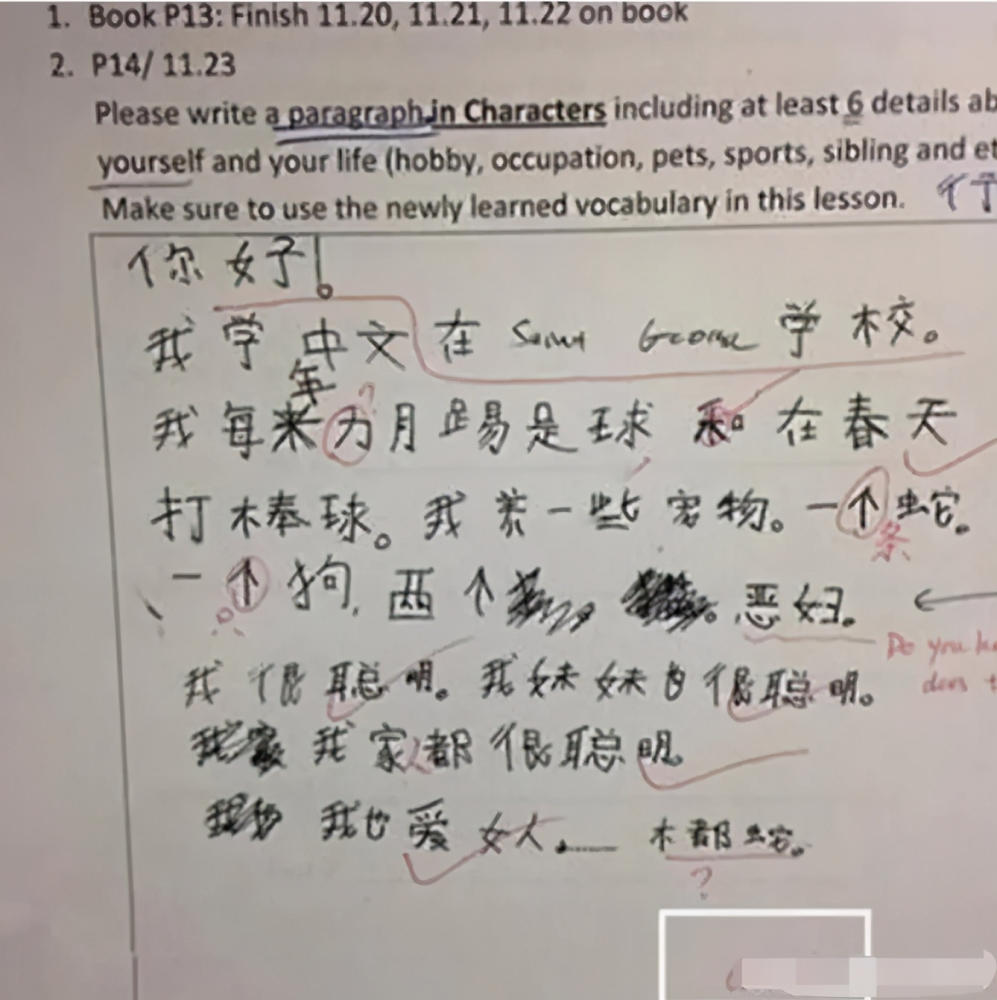 1. Book P13: Finish 11.20, 11.21, 11.22 on book
2. P14/ 11.23
Please write a paragraph in Characters including at least 6 details ab
yourself and your life (hobby, occupation, pets, sports, sibling and et
Make sure to use the newly learned vocabulary in this lesson.
你好!
我学中文在 George 学校。
年
我每来力月踢是球和在春天
?
打棒球。我养一些宠物。一个蛇。
条
一个狗,两个 恶妇。
Do you
我很聪明。我妹妹也很聪明。
我家人都很聪明。
我也爱女人。 木都蛇。
?